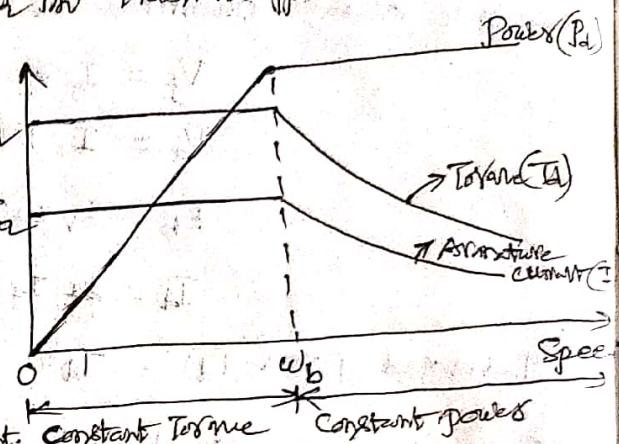 Power(Pd)
Torque(Td)
Armature
current(I
Speed
0
ωb
Constant Torque
Constant power